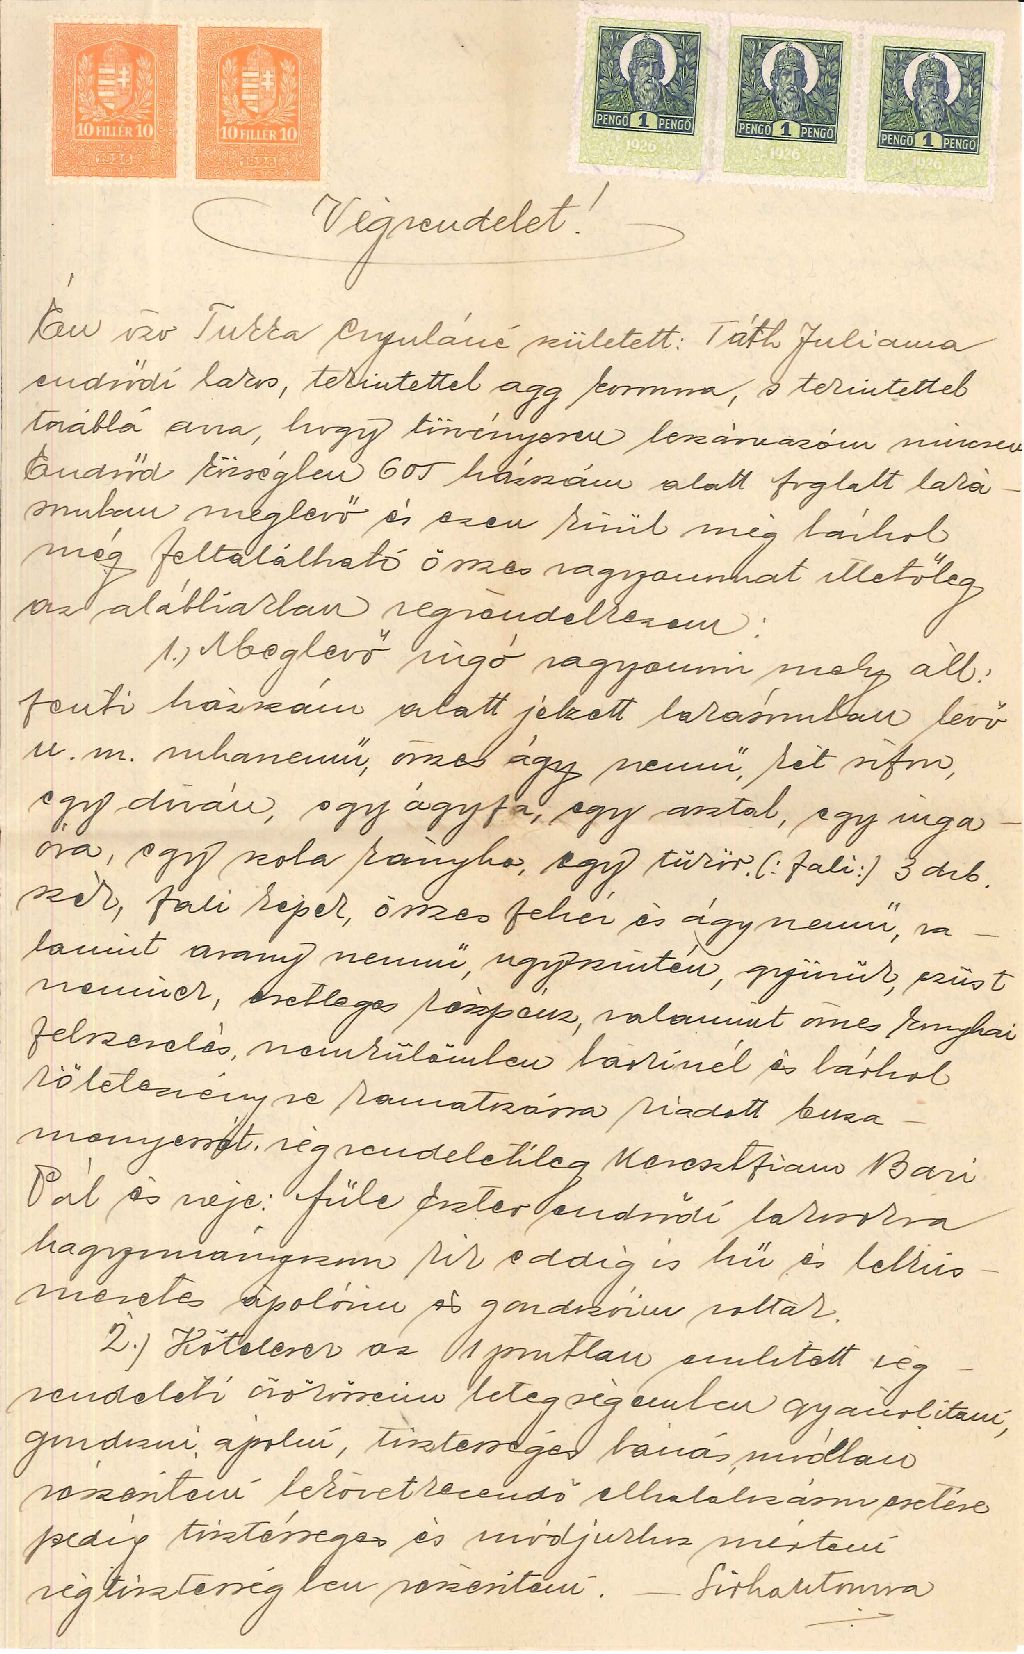 10 FILLÉR 10
1926
10 FILLÉR 10
1926
PENGŐ 1 PENGŐ
1926
PENGŐ 1 PENGŐ
1926
PENGŐ 1 PENGŐ
1926
Végrendelet!
Én özv Turka született: Tóth Julianna
endrődi lakos, tekintettel agg koromra, s tekintettel
továbbá arra, hogy törvényesen leszármazóim nincsen
Endrőd községben 605 házszám alatt foglalt laká-
somban meglevő és ezen kívül még bárhol
még feltalálható összes vagyonomat illetőleg
az alábbiakban végrendelkezem:
1.) Meglevő ingó vagyonom mely áll:
fenti házszám alatt jelzett lakásomban levő
u. m. ruhanemű, összes ágy nemű, két sifon,
egy diván, egy ágyfa, egy asztal, egy inga-
óra, egy tükör (: fali:) 3 drb.
szék, fali képek, összes fehér és ágy nemű, va-
lamint arany nemű, ugyszintén, gyűrűk, ezüst
neműek, esetleges készpénz, valamint összes konyhai
felszerelés, nemkülömben bárkinél és bárhol
kötelezvényre kamatozásra kiadott buza
mennyiségét végrendeletileg Keresztfiam Bari
Pál és neje: Füle Eszter endrődi lakosokra
hagyományozom kik eddig is hű és lelkiis-
meretes ápolóim és gondozóim voltak.
2.) Kötelesek az 1 pontban emlitett vég-
rendeleti örököseim betegségemben gyámolitani,
gondozni, ápolni, tisztességes bánásmódban
részesiteni bekövetkezendő elhalálozásom esetére
pedig tisztességes és módjukhoz mérteni
végtisztességben részesiteni. — Sirhantomra